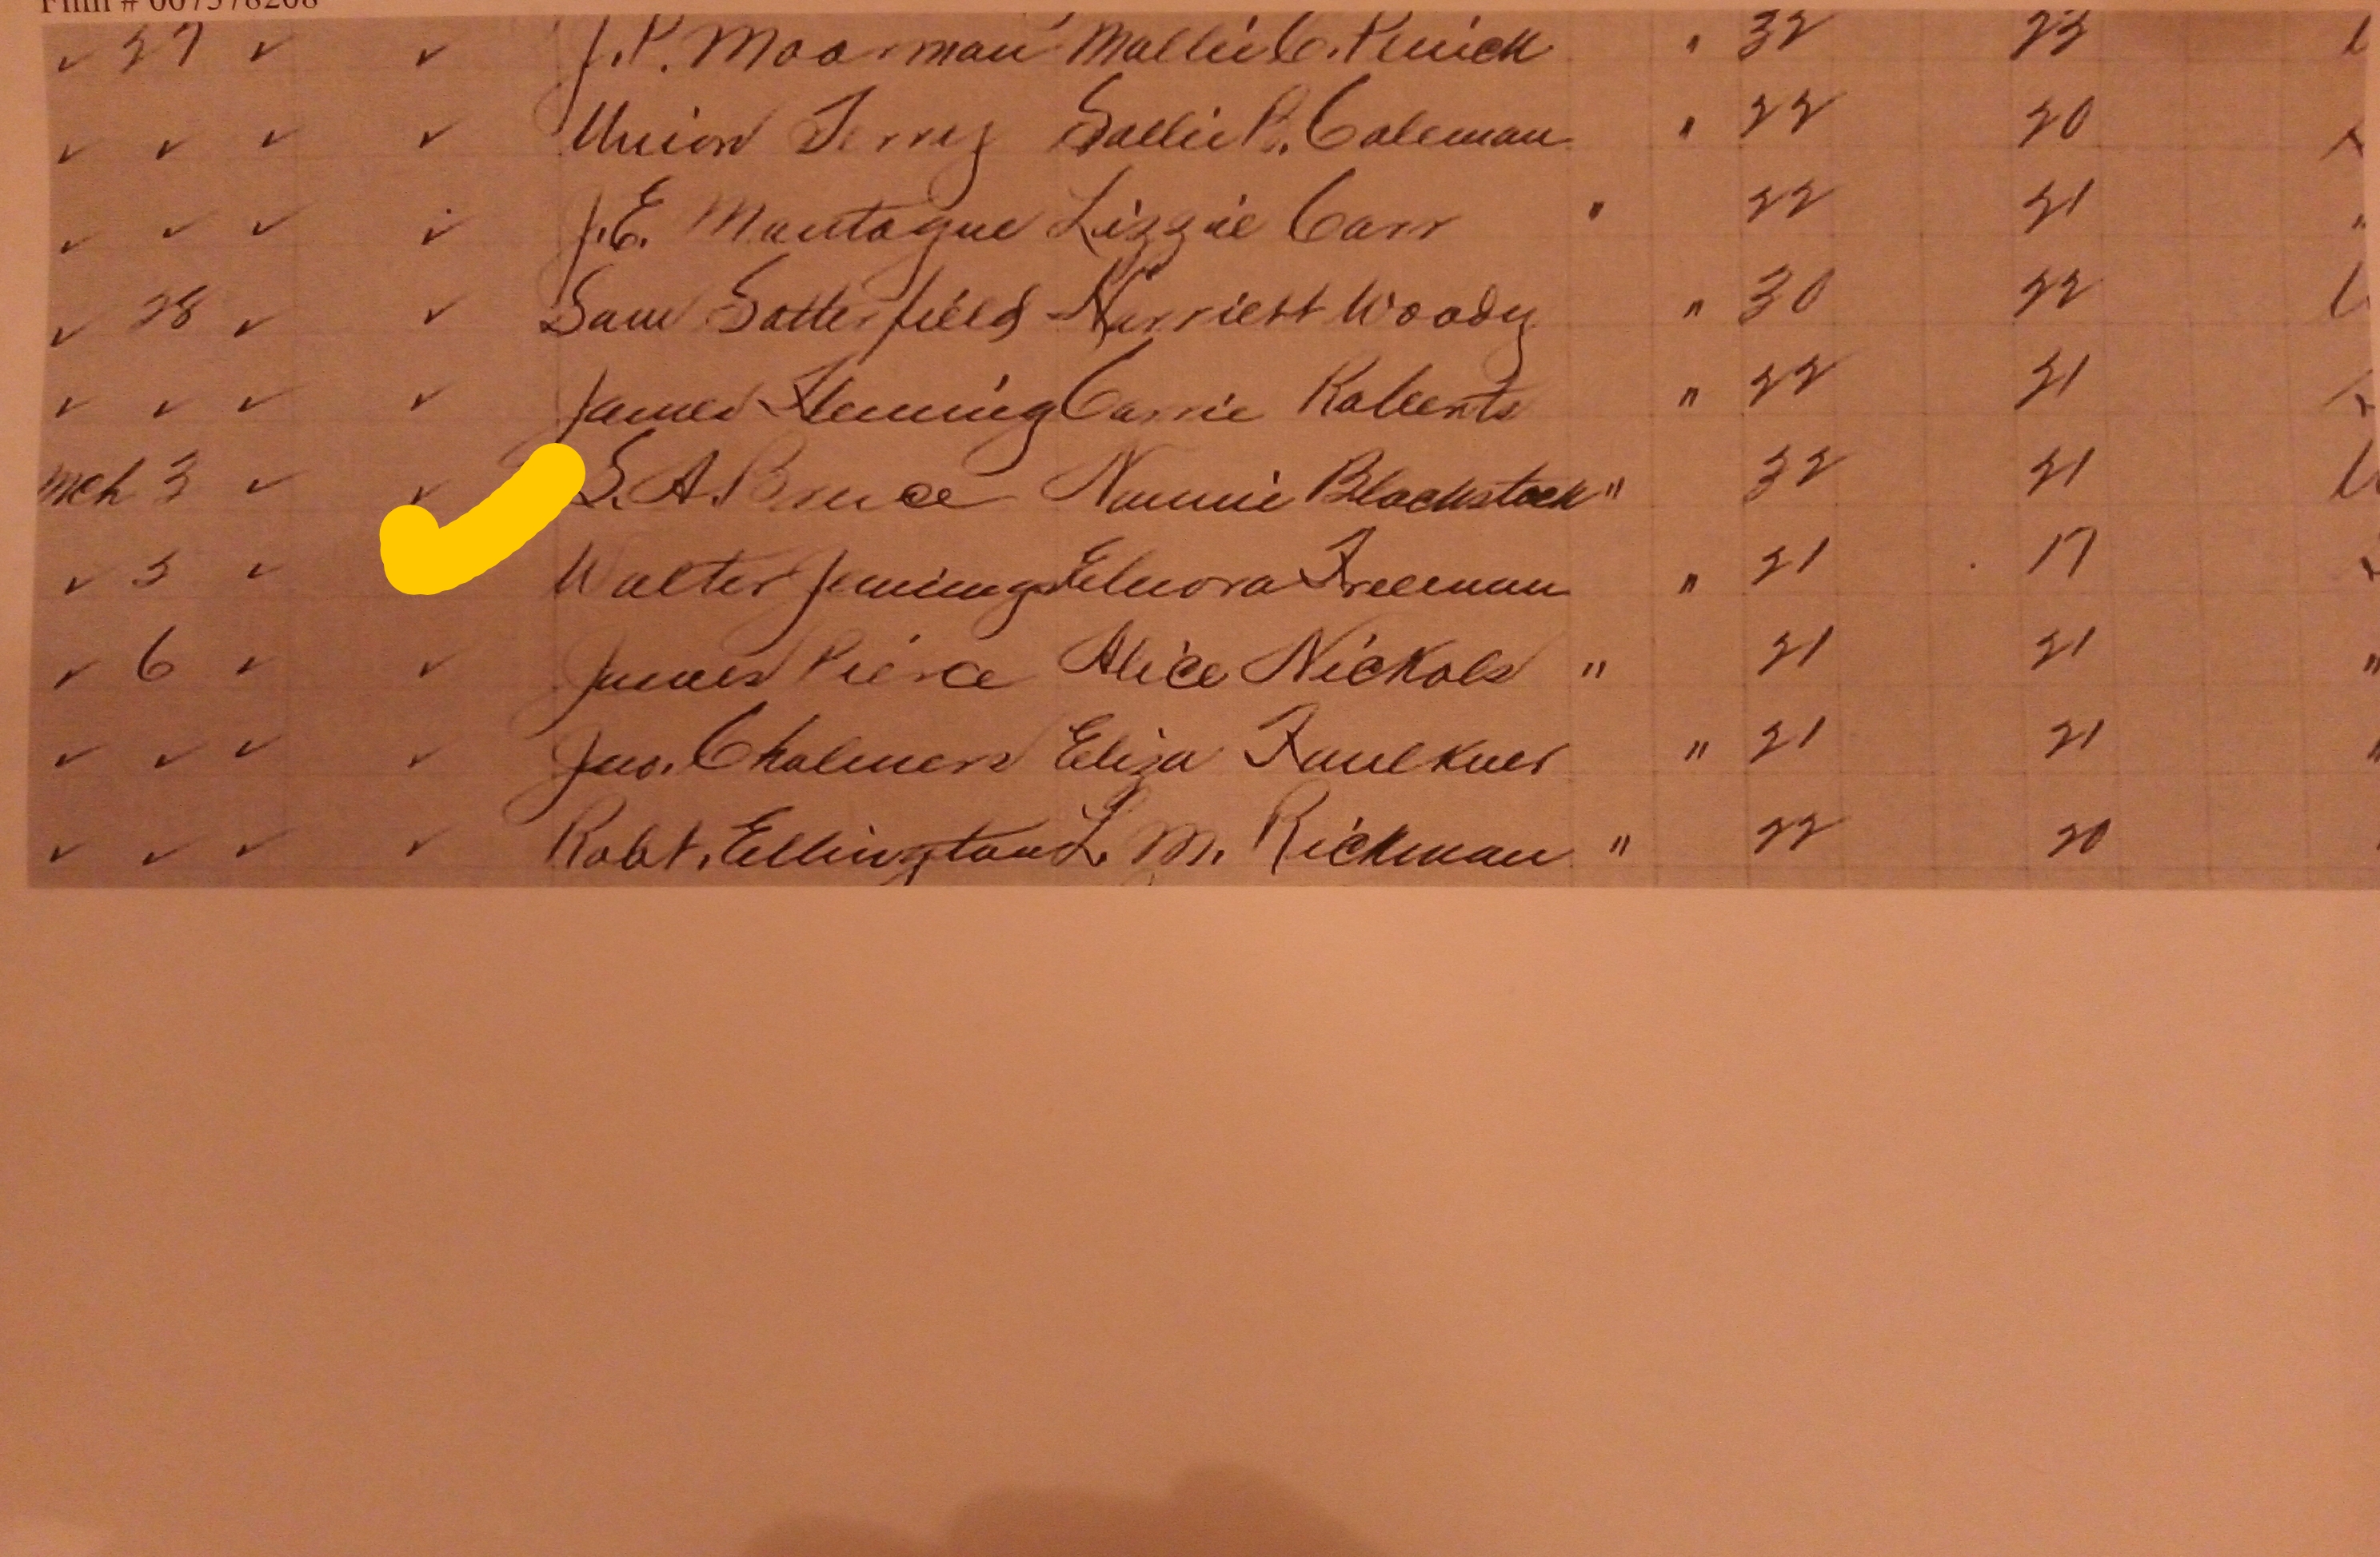 Film # 007578208
✓ 27 ✓ ✓ J. P. Moorman Mallie C. Penick " 32 23
✓ ✓ ✓ ✓ Union Terry Sallie P. Coleman " 22 20
✓ ✓ ✓ ✓ J. E. Montague Lizzie Carr " 22 21 "
✓ 28 ✓ ✓ Sam Satterfield Harriett Woody " 30 22
✓ ✓ ✓ ✓ James Fleming Carrie Roberts " 22 21
Mch 3 ✓ ✓ S. A. Bruce Nannie Blackstock " 32 21
✓ 5 ✓ Walter Jennings Elnora Freeman " 21 17
✓ 6 ✓ ✓ James Pierce Alice Nickols " 21 21 "
✓ ✓ ✓ ✓ Jno. Chalmers Eliza Faulkner " 21 21 "
✓ ✓ ✓ ✓ Robt. Ellington L. M. Rickman " 22 20